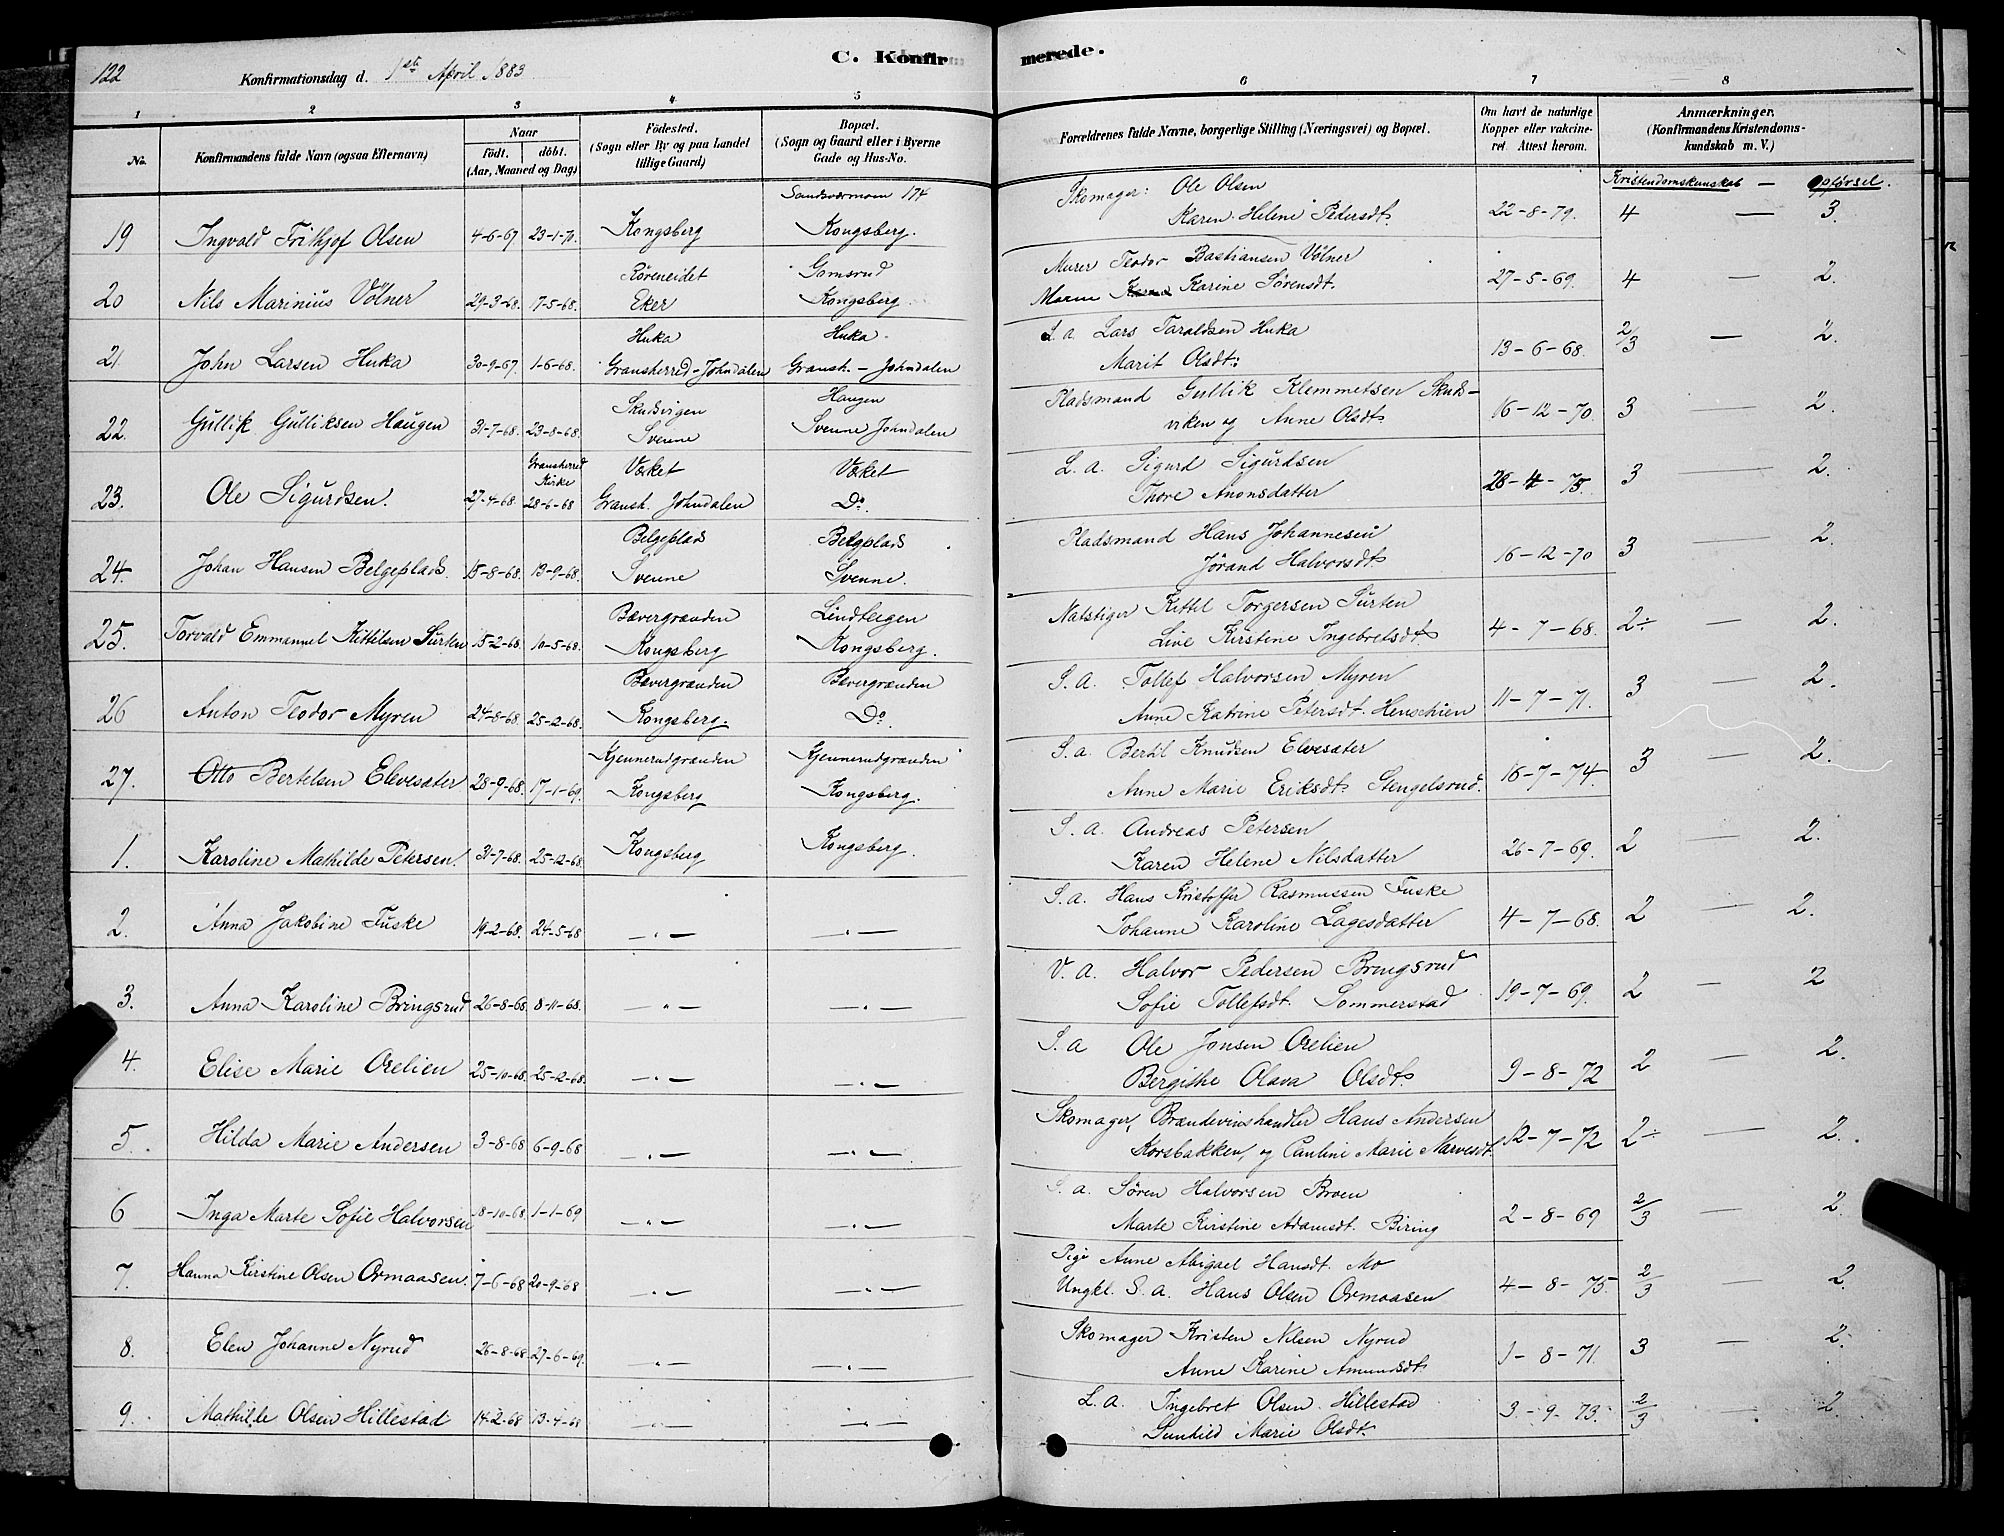 122
Konfirmationsdag d. 1ste April 1883
C. Konfirmerede.
1 2 3 4 5 6 7 8
No.
Konfirmandens fulde Navn (ogsaa Efternavn)
Naar
født. døbt.
(Aar, Maaned og Dag)
Fødested.
(Sogn eller By og paa Landet
tillige Gaard)
Bopæl.
(Sogn og Gaard eller i Byerne
Gade og Hus-No.
Forældrenes fulde Navne, borgerlige Stilling (Næringsvei) og Bopæl.
Om havt de naturlige
Kopper eller vakcine-
ret. Attest herom.
Anmærkninger.
(Konfirmandens Kristendoms-
kundskab m. V.)
Kristendomskunskab — Opførsel.
Sandsværmoen 174
Skomager: Ole Olsen
19 Ingvald Frithjof Olsen 4-6-67. 23-1-70. Kongsberg Kongsberg. Karen Helene Pedersdt. 22-8-79. 4 — 3.
Røreneidet Gomsrud Murer Teodor Bastiansen Völner
20 Nils Marinius Völner 29-3-68. 17-5-68. Eker Kongsberg Maren Karine Sørensdt. 27-5-69. 4 — 2.
Huka Huka S. a. Lars Taraldsen Huka
21. John Larsen Huka 30-9-67. 1-6-68. Gransherred-Johndalen Gransh. - Johndalen Marit Olsdt: 13-6-68. 2/3 — 2.
Skudsvigen Haugen Pladsmand Gullik Klemmetsen Skuds-
22. Gullik Gulliksen Haugen 31-7-68. 23-8-68. Svenne Svenne Johndalen viken og Anne Olsdt. 16-12-70. 3 — 2.
Gransherred Kirke Væket Væket L. a. Sigurd Sigurdsen
23. Ole Sigurdsen. 27-4-68. 28-6-68 Gransh. Johndalen Do. Thore Anonsdatter 28-4-75. 3 — 2.
Belgeplads Belgplads Pladsmand Hans Johannesen
24. Johan Hansen Belgeplads. 15-8-68. 13-9-68. Svenne Svenne. Jørand Halvorsdt. 16-12-70 3 — 2.
Bævergrænden Lindteigen Natstiger Kittil Torgersen Surten
25. Torvald Emmanuel Kittelsen Surten 15-2-68. 10-5-68. Kongsberg Kongsberg. Live Kirstine Ingebretsdt. 4-7-68. 2÷ — 2.
Bævergrænden Bævergrænden S. a. Tollef Halvorsen Myren
26 Anton Teodor Myren 24-8-68. 25-12-68. Kongsberg. Do. Anne Katrine Petersdt. Henschien 11-7-71. 3 — 2.
Kjennerudgrænden Kjennerudgrænden S. a. Bertil Knudsen Elvesæter
27. Otto Bertelsen Elevesæter 28-9-68. 17-1-69. Kongsberg Kongsberg. Anne Marie Eriksdt. Stengelsrud. 16-7-74. 3 — 2.
S. a. Andreas Petersen
1. Karoline Mathilde Petersen 31-7-68. 25-12-68. Kongsberg Kongsberg. Karen Helene Nilsdatter 26-7-69. 2 — 2.
S. a. Hans Kristoffer Rasmussen Fuske
2. Anna Jakobine Fuske 19-2-68. 24-5-68 —"— —"— Johanne Karoline Lagesdatter 4-7-68. 2 — 2.
V. a. Halvor Pedersen Bringsrud
3. Anna Karoline Bringsrud 26-8-68 8-11-68. —"— —"— Sofie Tollefsdt. Sommerstad 19-7-69. 2 — 2
S. a Ole Jonsen Orelien
4. Elise Marie Orelien 25-10-68. 25-12-68. —"— —"— Bergithe Olava Olsdt. 9-8-72 2 — 2.
Skomager, Brændevinshandler Hans Andersen
5. Hilda Marie Andersen 3-8-68 6-9-68 —"— —"— Korsbakken, og Pauline Marie Narvesdt. 12-7-72 2÷ — 2.
S. a. Søren Halvorsen Broen
6 Inga Marte Sofie Halvorsen 18-10-68. 1-1-69 —"— —"— Marte Kirstine Adamsdt. Biring 2-8-69 2/3 — 2.
Pige Anne Abigael Hansdt. Mo
7. Hanna Kirstine Olsen Ormaasen. 7-6-68 20-9-68 —"— —"— Ungkl. S. a. Hans Olsen Ormaasen 4-8-75. 2/3 — 2.
Skomager Kristen Nilsen Nyrud
8. Elen Johanne Nyrud 26-8-68 27-6-69. —"— —"— Anne Karine Amundsdt. 1-8-71. 3 — 2.
L. a. Ingebret Olsen Hillestad
9. Mathilde Olsen Hillestad 14-2-68 13-4-68 —"— —"— Gunhild Marie Olsdt. 3-9-73. 2/3 — 2.